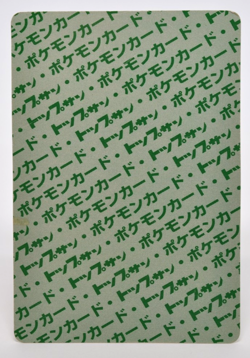 トップサン・
ポケモンカード・
トップサン・ポケモンカード・
ポケモンカード・トップサン・
トップサン・ポケモンカード・
ポケモンカード・トップサン・
トップサン・ポケモンカード・
ポケモンカード・トップサン・
トップサン・ポケモンカード・
ポケモンカード・トップサン・
トップサン・ポケモンカード・
ポケモンカード・トップサン・
トップサン・ポケモンカード・
ポケモンカード・